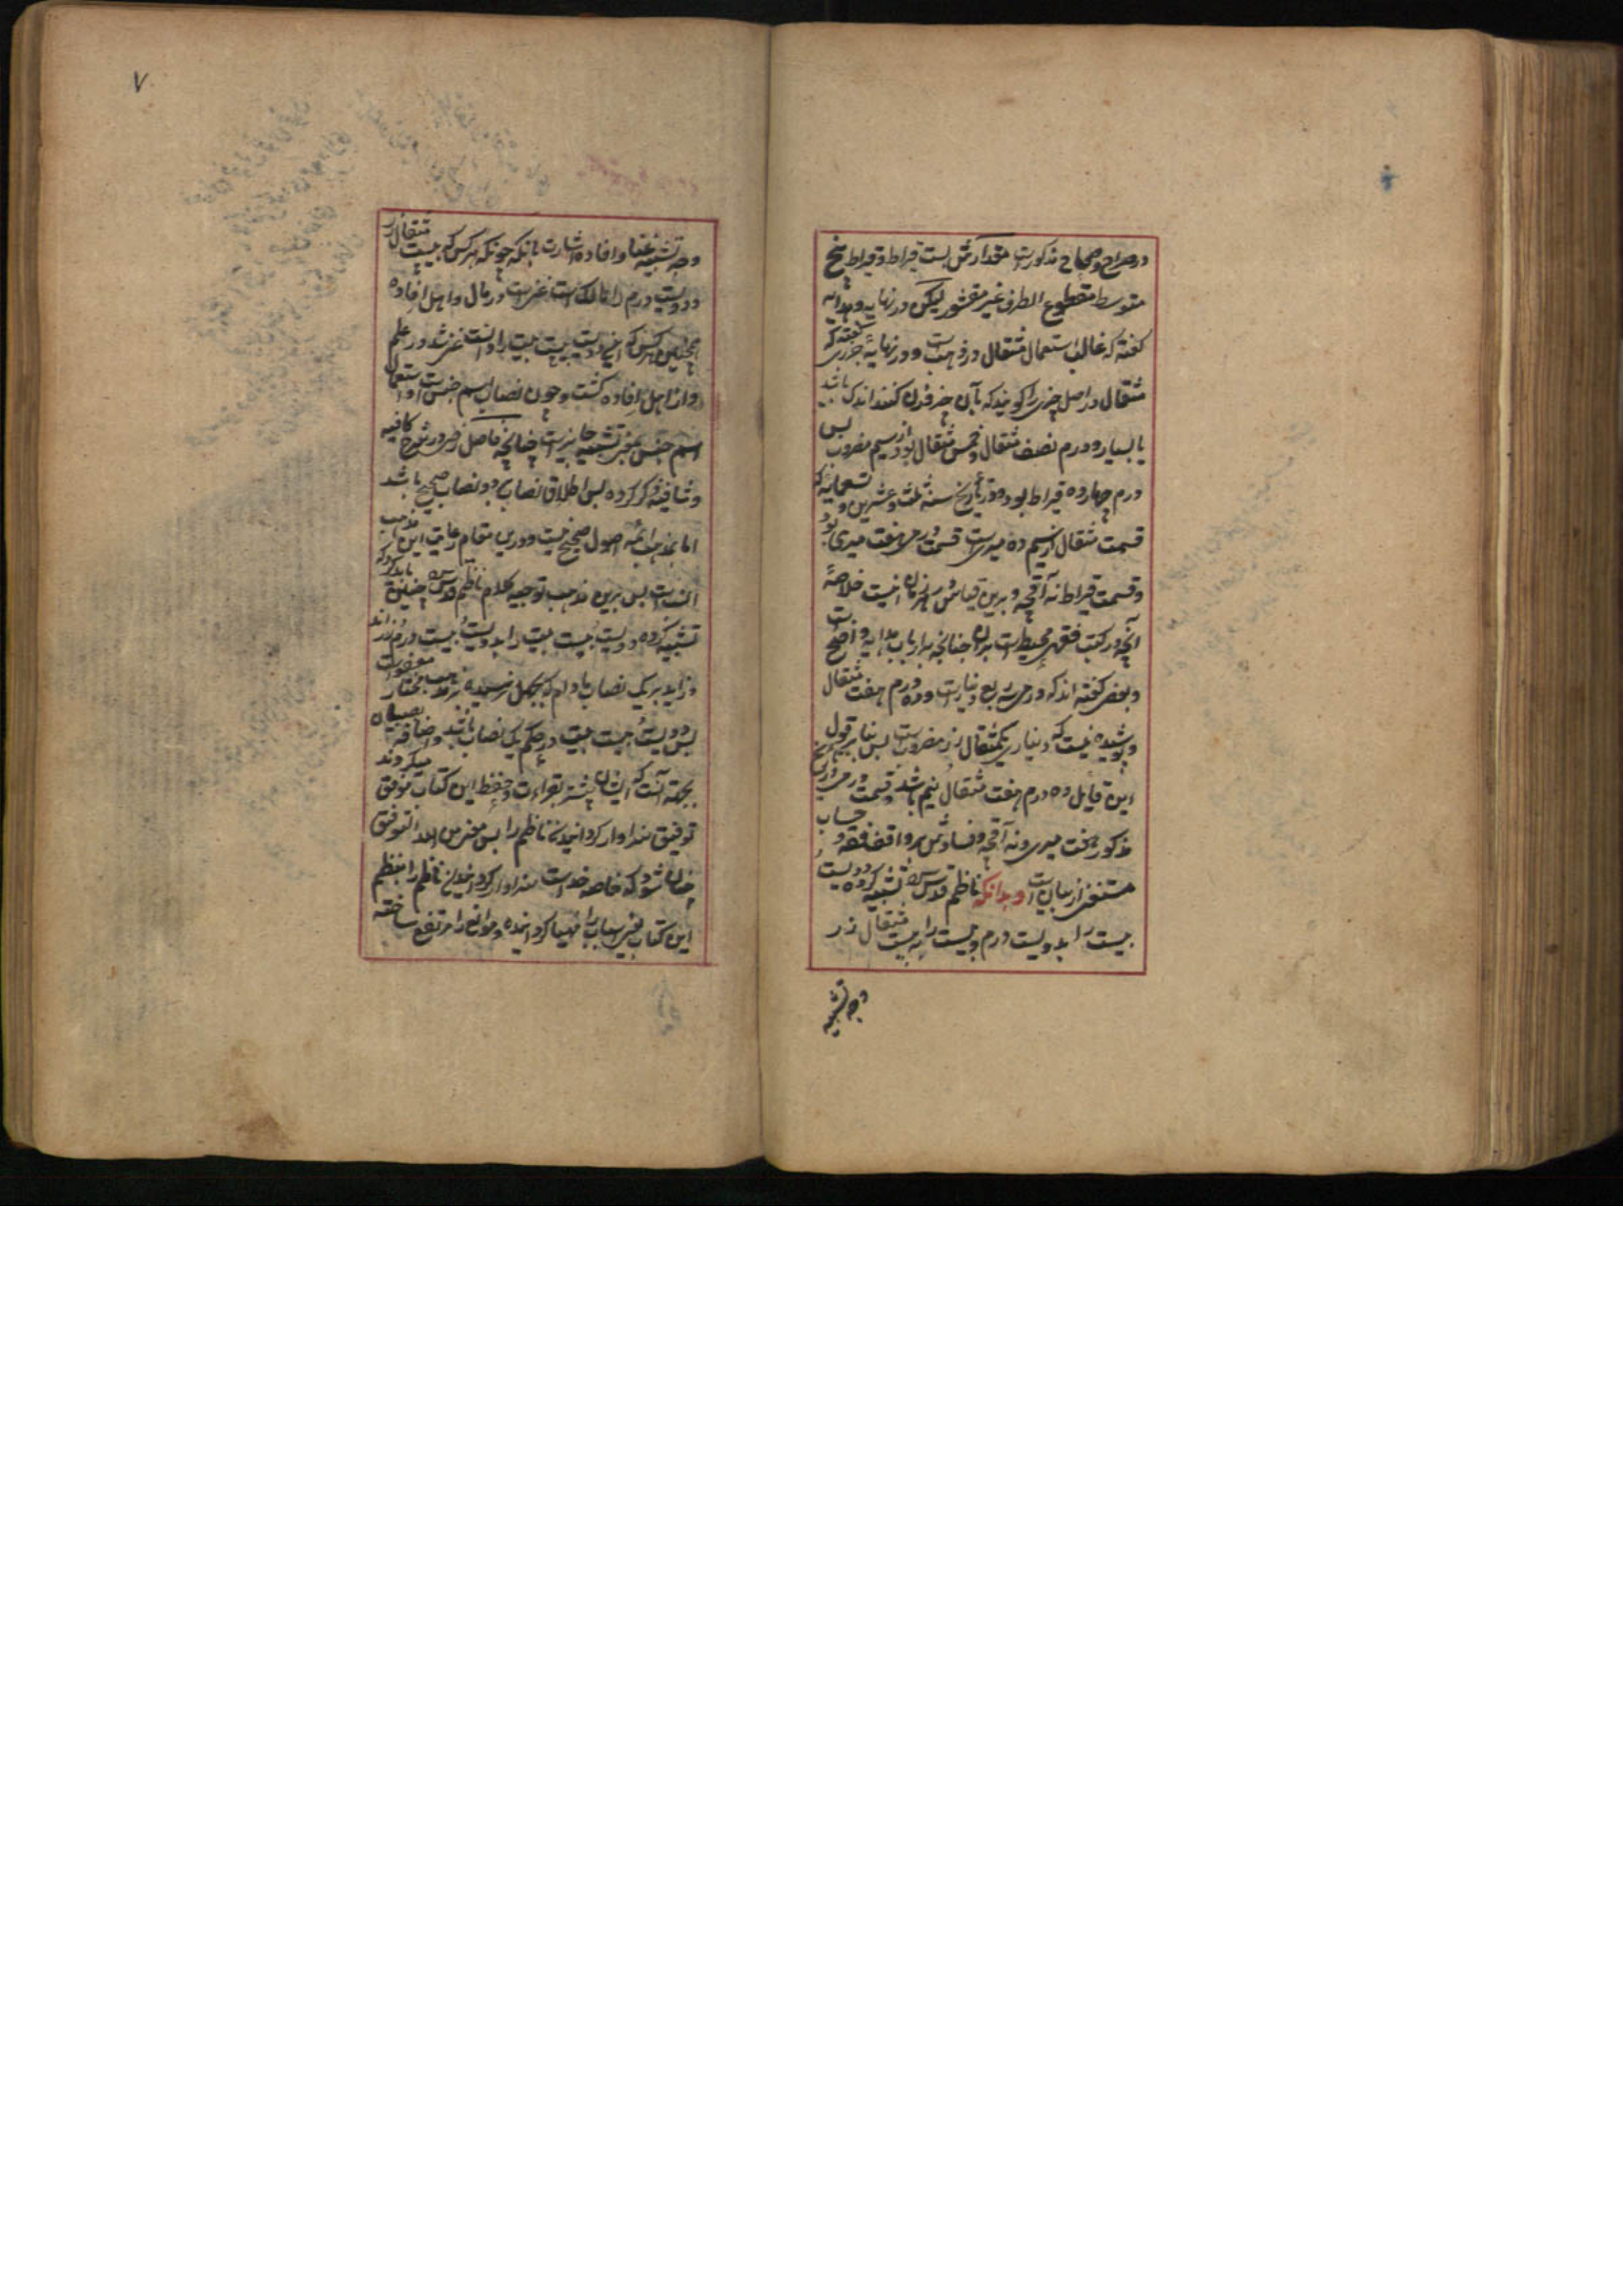 در صراح و صحاح مذکورست مقدارش بیست قیراط و قیراط پنج
متوسط مقطوع الطرف غیر مقشور لیکن در نهایه و هدایه
گفته که غالب استعمال مثقال در ذهب است و در نهایهٔ جزری گفته که
مثقال در اصل چیزی را گویند که بآن چیز وزن کنند اندک باشد
یا بسیار و درم نصف مثقال و خمس مثقال بود از سیم مضروب پس
درم چهارده قیراط بود و در تاریخ سنهٔ ثلث و عشرین و تسعمایه که
قسمت مثقال از سیم ده میری است قسمت درمی هفت میری بود
و قیمت قیراط نه آقچه و برین قیاس در هر زمان اینست خلاصهٔ
آنچه در کتب فقهی محیط است بران چنانچه بر ارباب هدایه واضح
و بعضی گفته اند که درمی ربع دینارست و ده درم هفت مثقال
و پوشیده نیست که دینار یکمثقال زر مضروبست پس بنا بر قول
این قایل ده درم هفت مثقال نیم باشد و قیمت درمی در تاریخ
مذکور هفت میری و نه آقچه و فسادش بر واقف فقه و حساب
مستغنی از بیان است و بدانکه ناظم قدس سره تشبیه کرده دویست
بیست را بدویست درم و بیست را به بیست مثقال زر
وجه تشبیه
۷
وجه تشبیه غنا و افاده اشارت بانکه چونکه هرکس که بیست مثقال زر
دویست درم را مالک است غنی است در مال و اهل افاده
همچنین هرکس که این دویست بیست بیت را دانست غنی شد در علم
و از اهل افاده گشت و چون نصاب اسم جنس است و استعمال
اسم جنس بمعنی تشبیه جایزست چنانچه فاضل در شرح کافیه
و شافیه ذکر کرده پس اطلاق نصاب بدو نصاب صحیح باشد
اما بمذهب ائمه اصول صحیح نیست و درین مقام رعایت این مذهب
انسب است پس برین مذهب توجیه کلام ناظم قدس سره چنین باید کرد که
تشبیه کرده دویست بیست بیت را بدویست بیست درم زر اند
و زاید بر یک نصاب مادام که بکمال نرسیده بمذهب مختار معفوست
پس دویست بیست بیت در حکم یک نصاب باشد و اضافه بصبیان
بجهة آنست که ایشان بیشتر بقراءت و حفظ این کتاب موفق میگردند
توفیق سزاوار گردانیدن ناظم را پس معنی من الله التوفیق
چنان شود که خاصه خداست سزاوار گردانیدن ناظم را بنظم
این کتاب یعنی اسباب را مهیا گردانیده و موانع را مرتفع ساخته